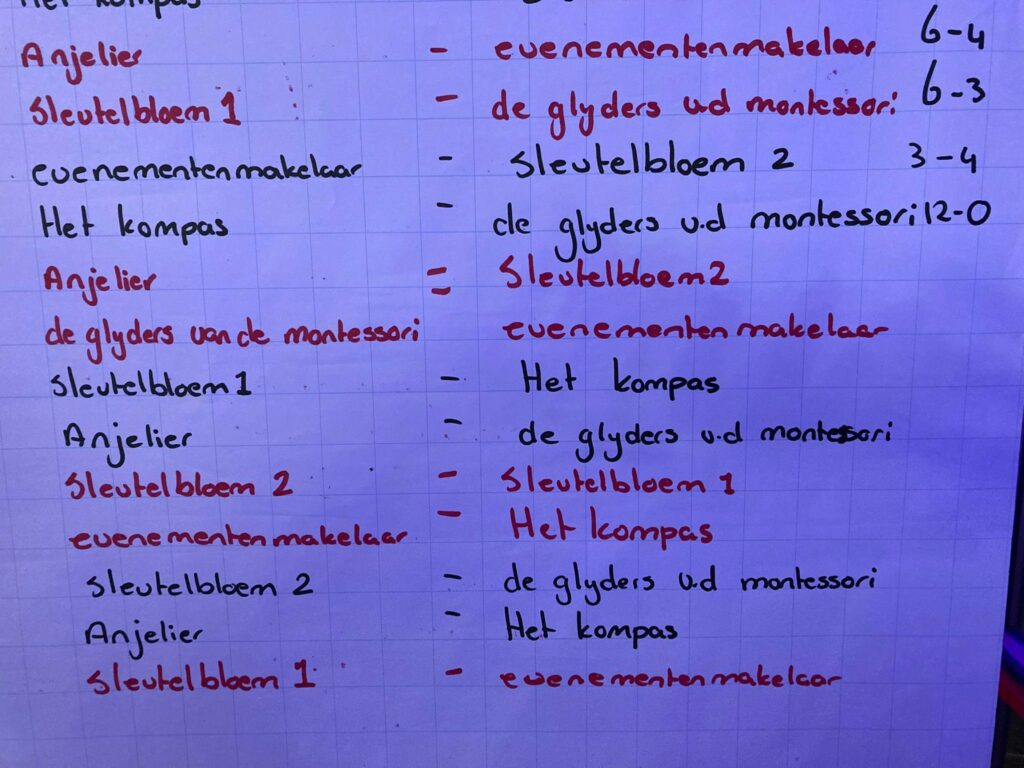 Het kompas
Anjelier - evenementenmakelaar 6-4
Sleutelbloem 1 - de glyders v.d montessori 6-3
evenementenmakelaar - Sleutelbloem 2 3-4
Het kompas - de glyders v.d montessori 12-0
Anjelier = Sleutelbloem 2
de glyders van de montessori evenementenmakelaar
Sleutelbloem 1 - Het kompas
Anjelier - de glyders v.d montessori
Sleutelbloem 2 - Sleutelbloem 1
evenementenmakelaar - Het kompas
Sleutelbloem 2 - de glyders v.d montessori
Anjelier - Het kompas
Sleutelbloem 1 - evenementenmakelaar